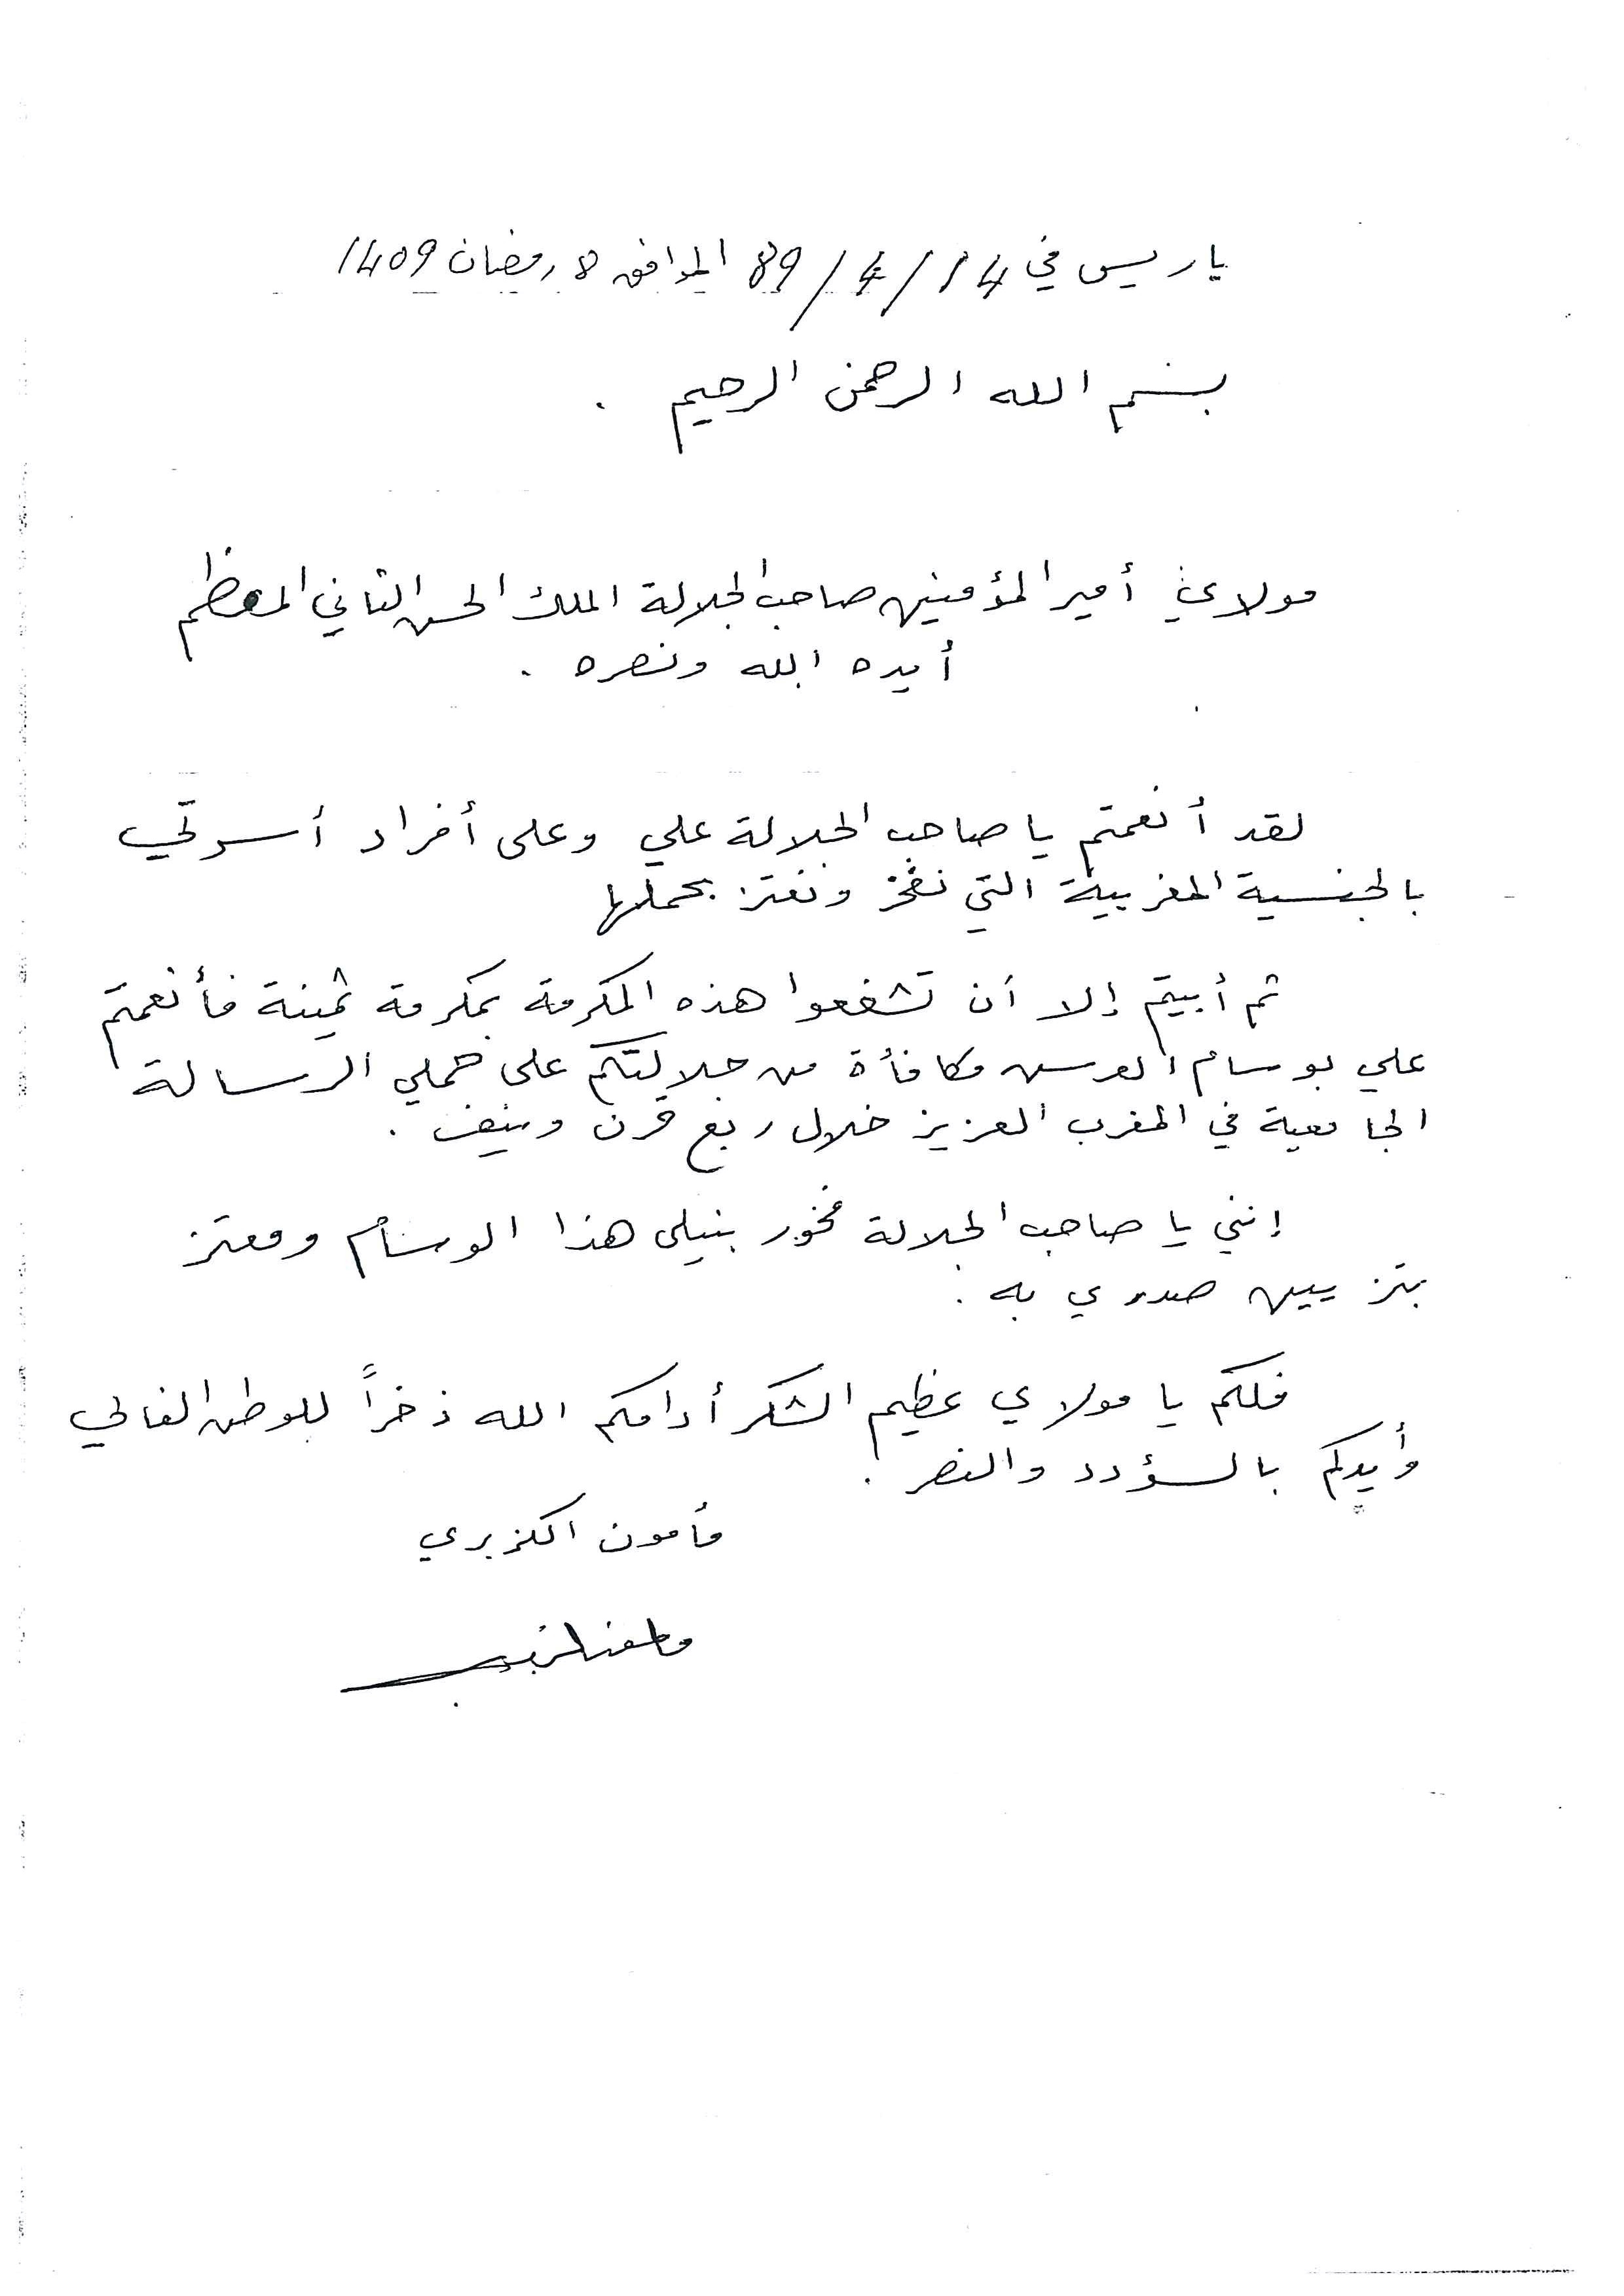 باريس في 14/4/89 الموافق 8 رمضان 1409
بسم الله الرحمن الرحيم .
مولاي أمير المؤمنين صاحب الجلالة الملك الحسن الثاني المعظم
أيده الله ونصره .
لقد أنعمتم يا صاحب الجلالة علي وعلى أفراد أسرتي
بالجنسية المغربية التي نفخر ونعتز بحملها
ثم أبيتم إلا أن تشفعوا هذه المكرمة بمكرمة ثمينة فأنعمتم
علي بوسام العرش مكافأة من جلالتكم على حملي الرسالة
الجامعية في المغرب العزيز خلال ربع قرن ونيف .
إنني يا صاحب الجلالة فخور بنيلي هذا الوسام ومعتز
بتزيين صدري به .
فلكم يا مولاي عظيم الشكر أدامكم الله ذخراً للوطن الغالي
وأيدكم بالسؤدد والنصر .
مأمون الكزبري